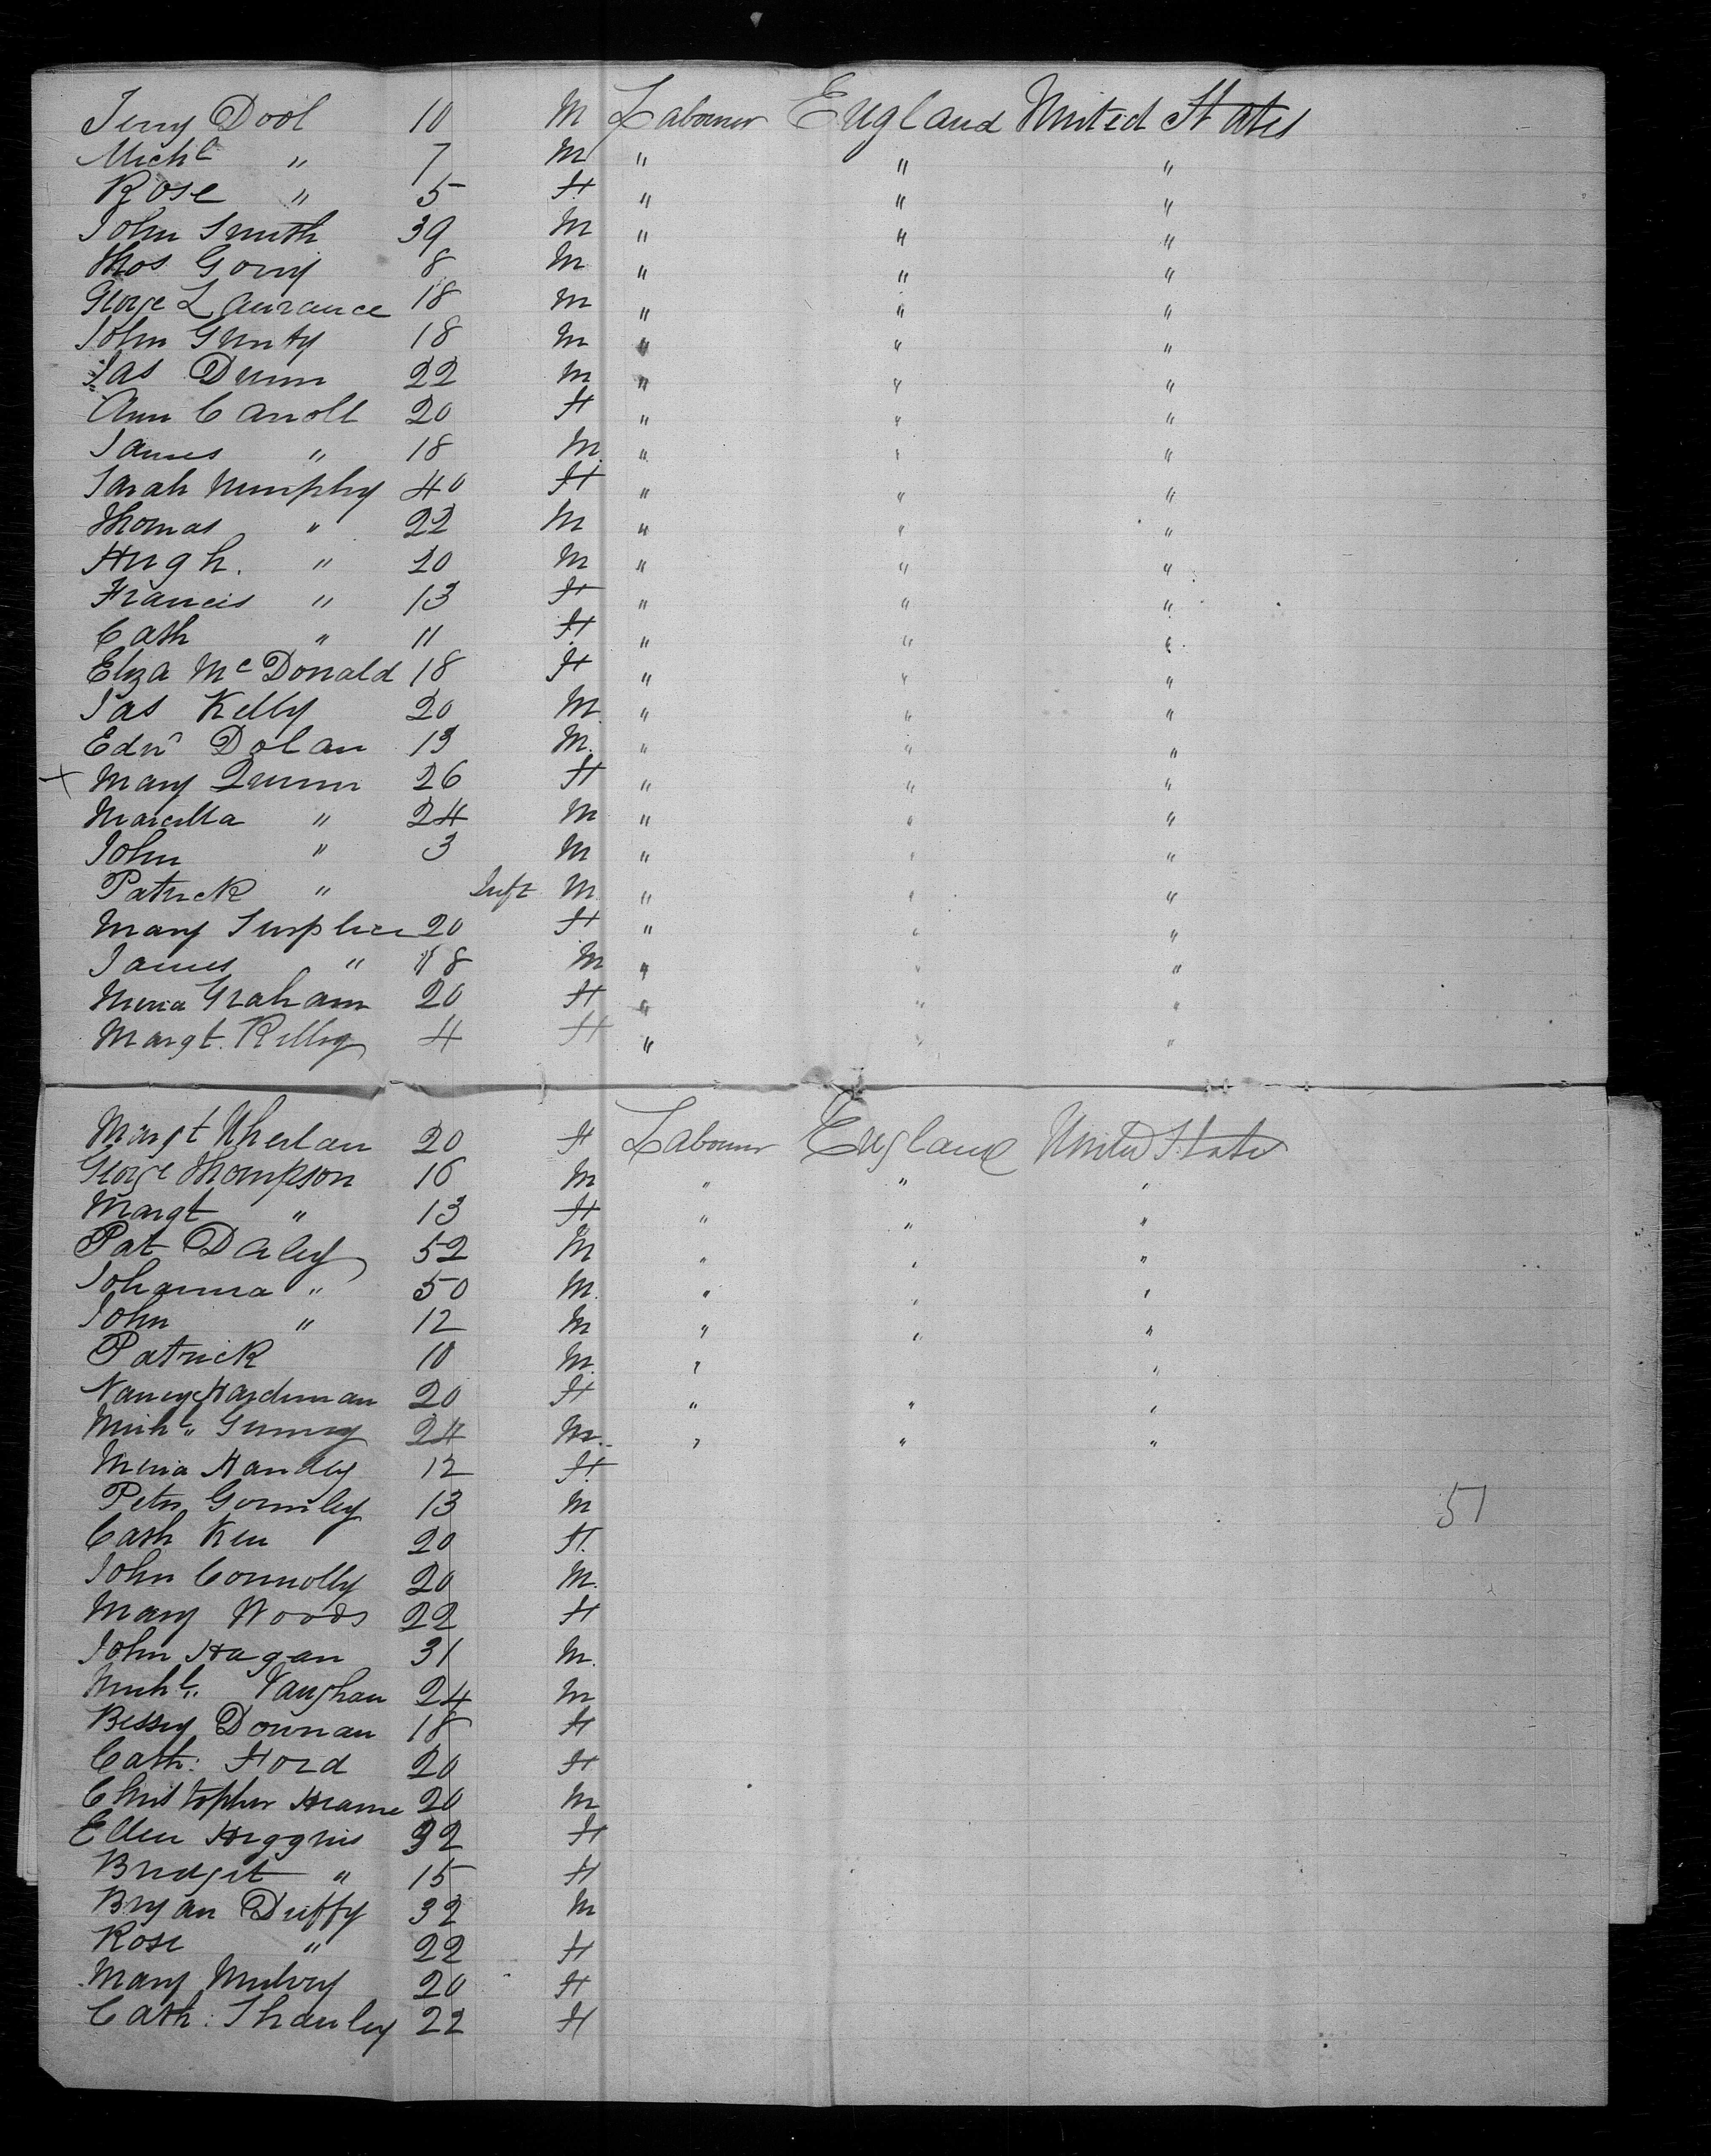 Jerry Dool 10 M Labourer England United States
Michl " 7 M " " "
Rose " 5 F " " "
John Smith 39 M " " "
Thos Gorry 8 M " " "
George Laurance 18 M " " "
John Gunty 18 M " " "
Jas Dunn 22 M " " "
Ann Carroll 20 F " " "
James " 18 M " " "
Sarah Murphy 40 F " " "
Thomas " 22 M " " "
Hugh. " 20 M " " "
Francis " 13 F " " "
Cath " 11 F " " "
Eliza McDonald 18 F " " "
Jas Kelly 20 M " " "
Edwd Dolan 13 M. " " "
+ Mary Quinn 26 F " " "
Marcella " 24 M " " "
John " 3 M " " "
Patrick " Inft M " " "
Mary Surplice 20 F " " "
James " 18 M " " "
Maria Graham 20 F " " "
Margt. Kelly 4 F " " "
Margt Whelan 20 F Labourer England United States
George Thompson 16 M " " "
Margt " 13 F " " "
Pat Daley 52 M " " "
Johanna " 50 M. " " "
John " 12 M " " "
Patrick 10 M. " "
Nancy Hardiman 20 F " " "
Michl " 24 M. " " "
Maria Handley 12 F
Peter Gormley 13 M
Cath 20 F.
John Connolly 20 M.
Mary Woods 22 F
John Hagan 31 M.
Michl. Vaughan 24 M
Bessy Downan 18 F
Cath: Ford 20 F
Christopher 20 M
Ellen Higgins 32 F
Bridget " 15 F
Bryan Duffy 32 M
Rose " 22 F
Mary Mulvey 20 F
Cath: Shanley 22 F
51